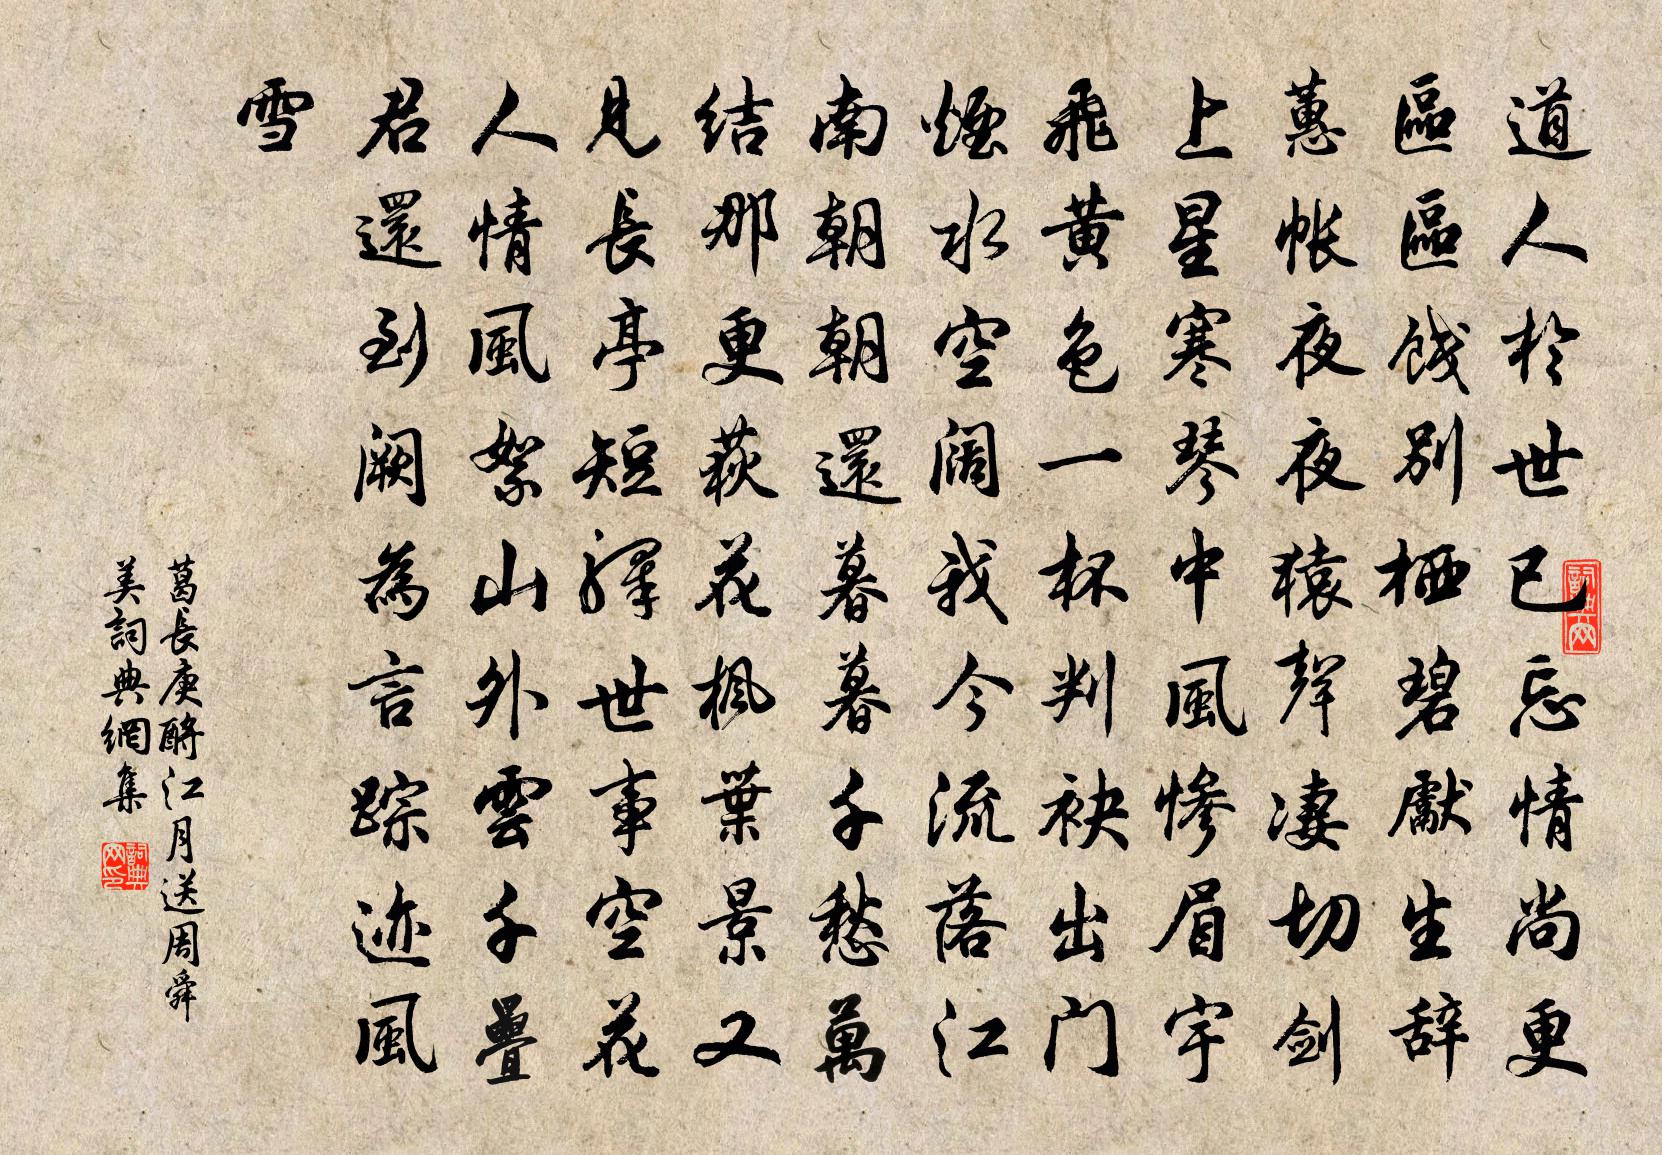 道人於世已忘情尚更
區區餞別栖碧獻生辞
蕙帳夜夜猿聲凄切剑
上星寒琴中風慘眉宇
飛黄色一杯判袂出门
煙水空阔我今流落江
南朝朝還暮暮千愁萬
结那更荻花楓葉景又
見長亭短驛世事空花
人情風絮山外雲千疊
君還到阙為言踪迹風
雪
葛長庚酹江月送周舜
美詞典網集
詞典网